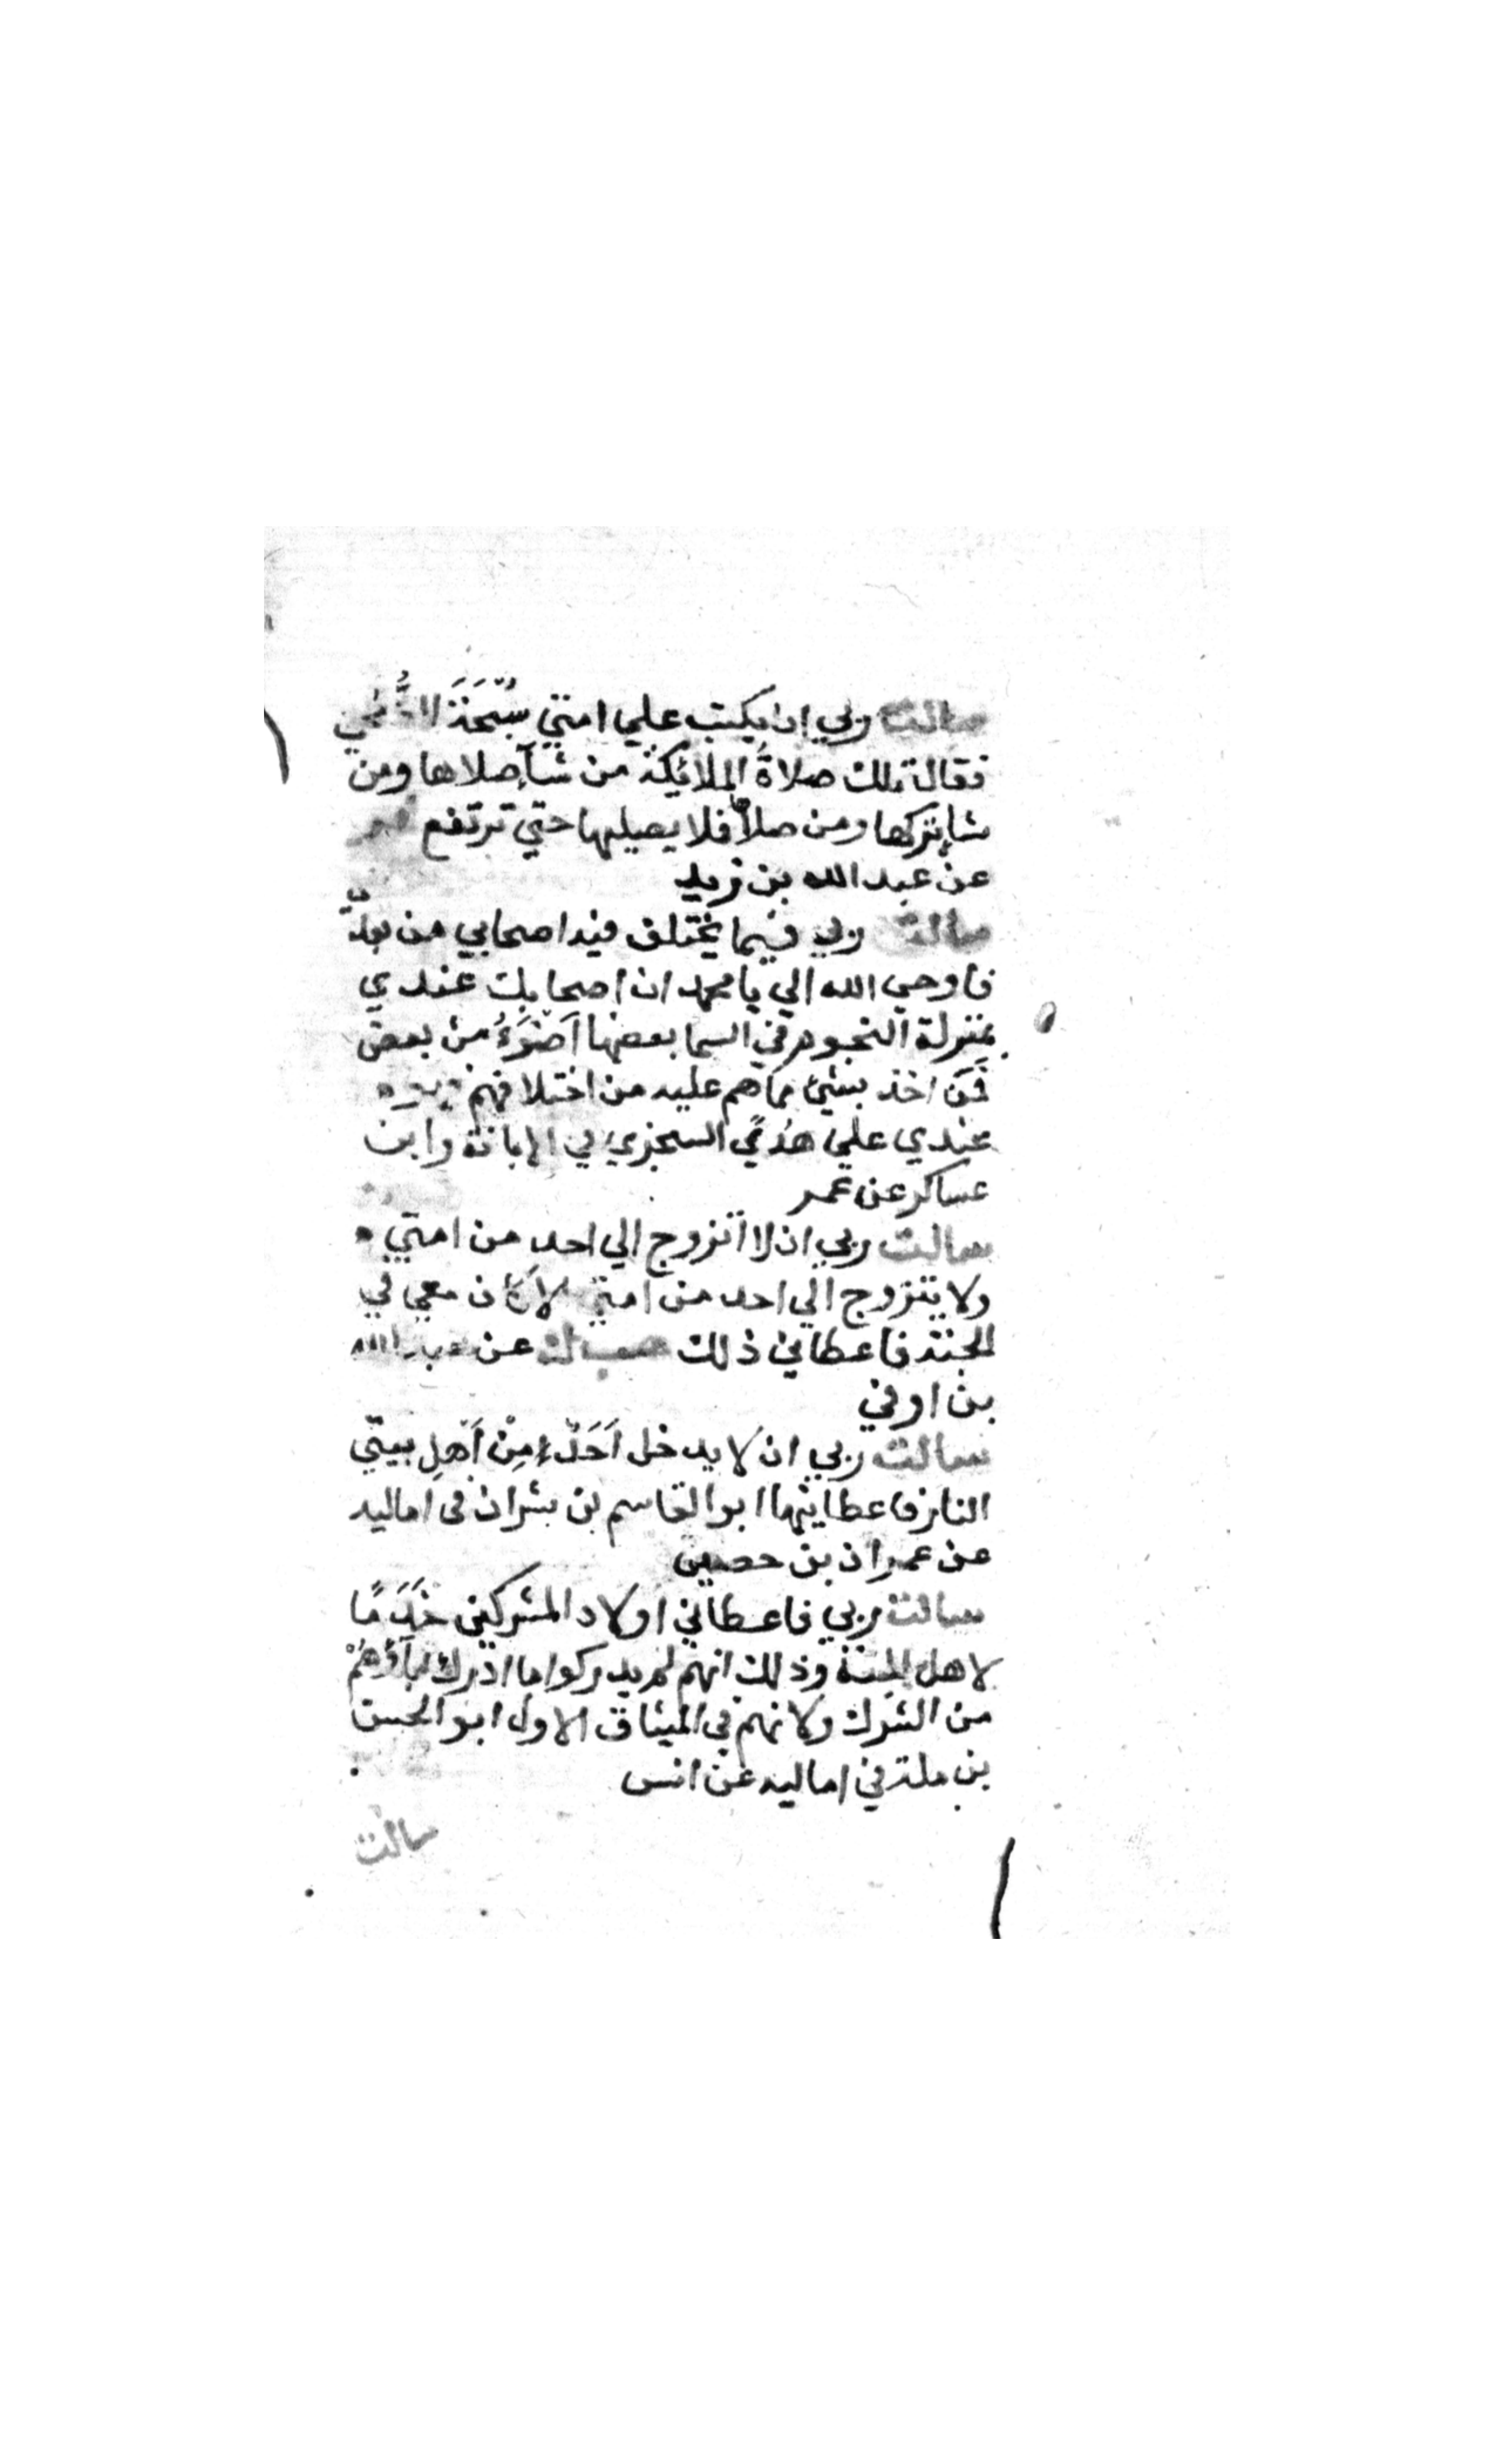 سالت ربي ان يكتب علي امتي سُبْحَةَ الضُّحي
فقال تلك صلاةُ الملائكة من شآ صلاها ومن
شا تركها ومن صلاها فلا يصليها حتي ترتفع
عن عبد الله بن زيد
سالت ربي فيما يختلف فيه اصحابي من بعدي
فاوحي الله الي يا محمد ان اصحابك عندي
بمنزلة النجوم في السما بعضها اَضْوَءُ من بعض
فَمَن اخذ بشئ مما هم عليه من اختلافهم فهو
عندي علي هُدًي السجزي في الابانة وابن
عساكر عن عمر
سالت ربي ان لا اتزوج الي احد من امتي
ولا يتزوج الي احد من امتي الا كان معي في
الجنة فاعطاني ذلك طب ك عن عبد الله
بن اوفي
سالت ربي ان لا يدخل اَحَدًا مِنْ اَهلِ بيتي
النار فاعطانيها ابو القاسم بن بشران في اماليه
عن عمران بن حصين
سالت ربي فاعطاني اولاد المشركين خَدَمًا
لاهل الجنة وذلك انهم لم يدركوا ما ادرك اباؤهُمْ
من الشرك ولانهم في الميثاق الاول ابو الحسن
بن ملة في اماليه عن انس
سالت